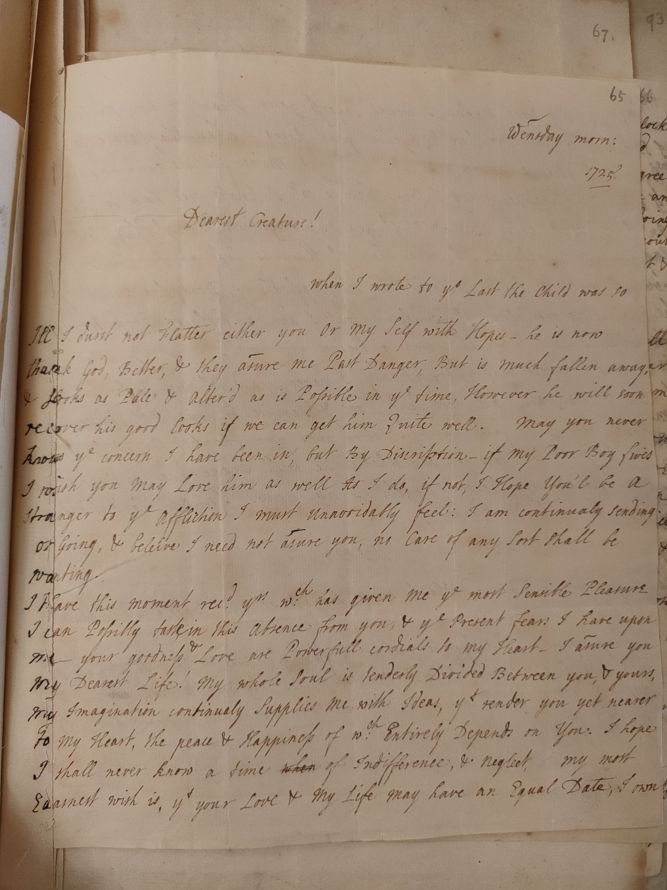 67.
93
65
66
Wensday morn:
1725
Dearest Creature!
when I wrote to yo Last the Child was so
Ill I durst not Flatter either you Or My Self with Hopes – he is now
thank God, Better, & they assure me Past Danger, But is much fallen away,
& Looks as Pale & Alter'd as is Possible in ye time, However he will soon
recover his good Looks if we can get him Quite well. May you never
know ye concern I have been in, but By Discription – if my Poor Boy lives
I wish you May Love him as well As I do, if not, I Hope You'l be A
Stranger to ye Affliction I must unavoidably feel: I am continualy sending
or Going, & beleive I need not assure you, no Care of any Sort shall be
wanting.
I Have this moment recd yrs wch has given Me ye most Sensible Pleasure
I can Possibly taste in this Absence from you, & ye Present fears I have upon
me – your goodness & Love are Powerfull cordials to my Heart – I assure you
My Dearest Life! My whole Soul is tenderly Divided Between you, & yours,
My Imagination continualy Supplies Me with Ideas, yt render you yet nearer
to My Heart, the peace & Happiness of wch Entirely Depends on You. I hope
I shall never know a time when of Indifference, & Neglect my most
Earnest wish is, yt your Love & My Life may have an Equal Date, I own